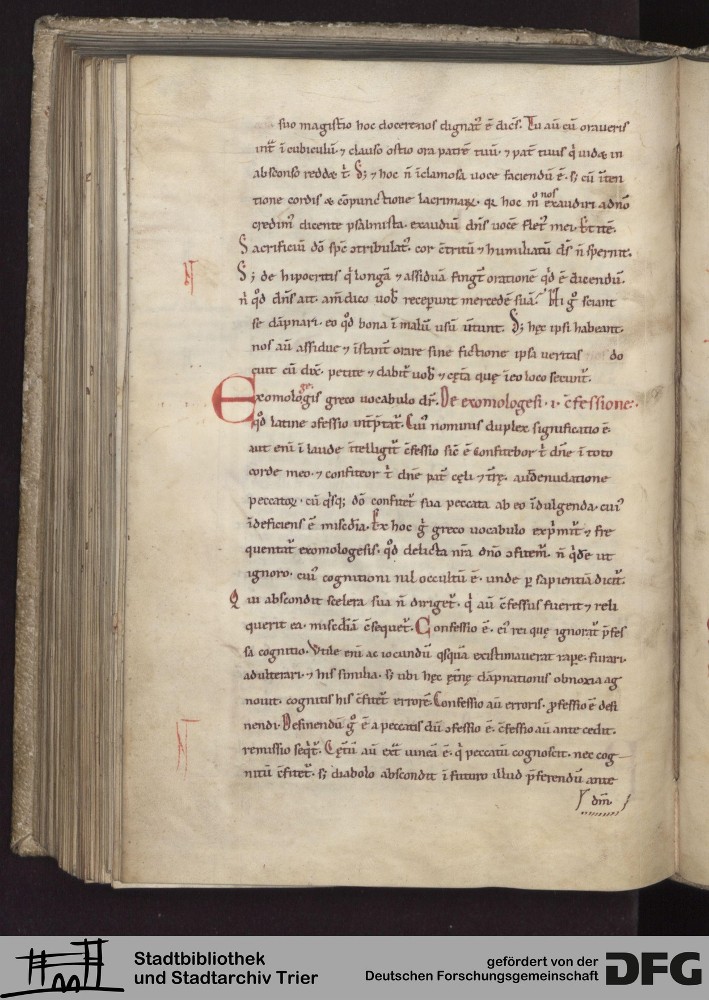 suo magist̄o hoc docere nos dignat᷒ ē dic̄s. Tu aū cū oraueris
int᷒ ī cubiculū. ⁊ clauso ostio ora patrē tuū. ⁊ pat̄ tuus q̇ uidæ in
absconso reddæ t̄. S; ⁊ hoc n̄ īclamosa uoce faciendū ē. s; cū īten
tione cordis æ cōpunctione lacrimaꝝ. hoc exaudiri adn̄o
credim᷒ dicente psalmista. exaudiuit dn̄s uocē flet᷒ mei. Et itē.
Sacrificiū dō sp̄c ɔtribulat᷒. cor c̄tritū ⁊ humiliatū d̄s n̄ spernit.
S; de hipocritis q̇ longā ⁊ assiduā fingt̄ orationē qd̄ ē dicendū.
n̄ qd̄ dn̄s ait. am̄ dico uob̄ receperunt mercedē suā. Hi g̊ sciant
se dāpnari. eo qd̄ bona ī malū usū ūtunt. S; hęc ipsi habeant.
nos aū assidue ⁊ īstant̄ orare sine fictione ipsa ueritas do
cuit cū dix̄. petite ⁊ dabit᷒ uob̄ ⁊ cęta quę ī eo loco secunt᷒.
Exomologesis greco uocabulo dr̄. De exomologesi. i. c̄fessione.
qd̄ latine ɔfessio int̄p̄tat᷒. Cui᷒ nominis duplex significatio ē.
aut eni ī laude ītelligit᷒ c̄fessio sic̄ ē confitebor t̄ dn̄e ī toto
corde meo. ⁊ confiteor t̄ dn̄e pat̄ cęli ⁊ t̄rę. aut denudatione
peccatoꝝ. cū q̇sq; dō confitet᷒ sua peccata ab eo īdulgenda. cui᷒
īdeficiens ē misc̄dia. Ex hoc g̊ greco uocabulo exp̄mit᷒ ⁊ fre
quentat᷒ exomologesis. qd̄ delicta nr̄a dn̄o ɔfitem᷒. n̄ q̇dē ut
ignoro. cui᷒ cognitioni nil occultū ē. unde p̱ sapientiā dicit᷒.
Qui abscondit scelera sua n̄ diriget᷒. q̇ aū c̄fessus fuerit ⁊ reli
querit ea. misc̄diā c̄sequet᷒. Confessio ē. ei᷒ rei quę ignorat᷒ p̄fes
sa cognitio. Vtile eni ac iocundū q̇squā existimauerat rape. furari.
adulterari. ⁊ his similia. s; ubi hęc ęt̄nę dāpnationis obnoxia ag
nouit. cognitis his c̄fitet᷒ errorē. Confessio aū erroris. ꝓfessio ē desi
nendi. Desinendū g̊ ē a peccatis dū ɔfessio ē. c̄fessio aū ante cedit.
remissio seq̇t᷒. Cętū aū ext̄ uineā ē. q̇ peccatū cognoscit. nec cog
nitū c̄fitet᷒. s; diabolo abscondit ī futuro illud p̄ferendū ante
dn̄m.
Stadtbibliothek
und Stadtarchiv Trier
gefördert von der
Deutschen Forschungsgemeinschaft
DFG